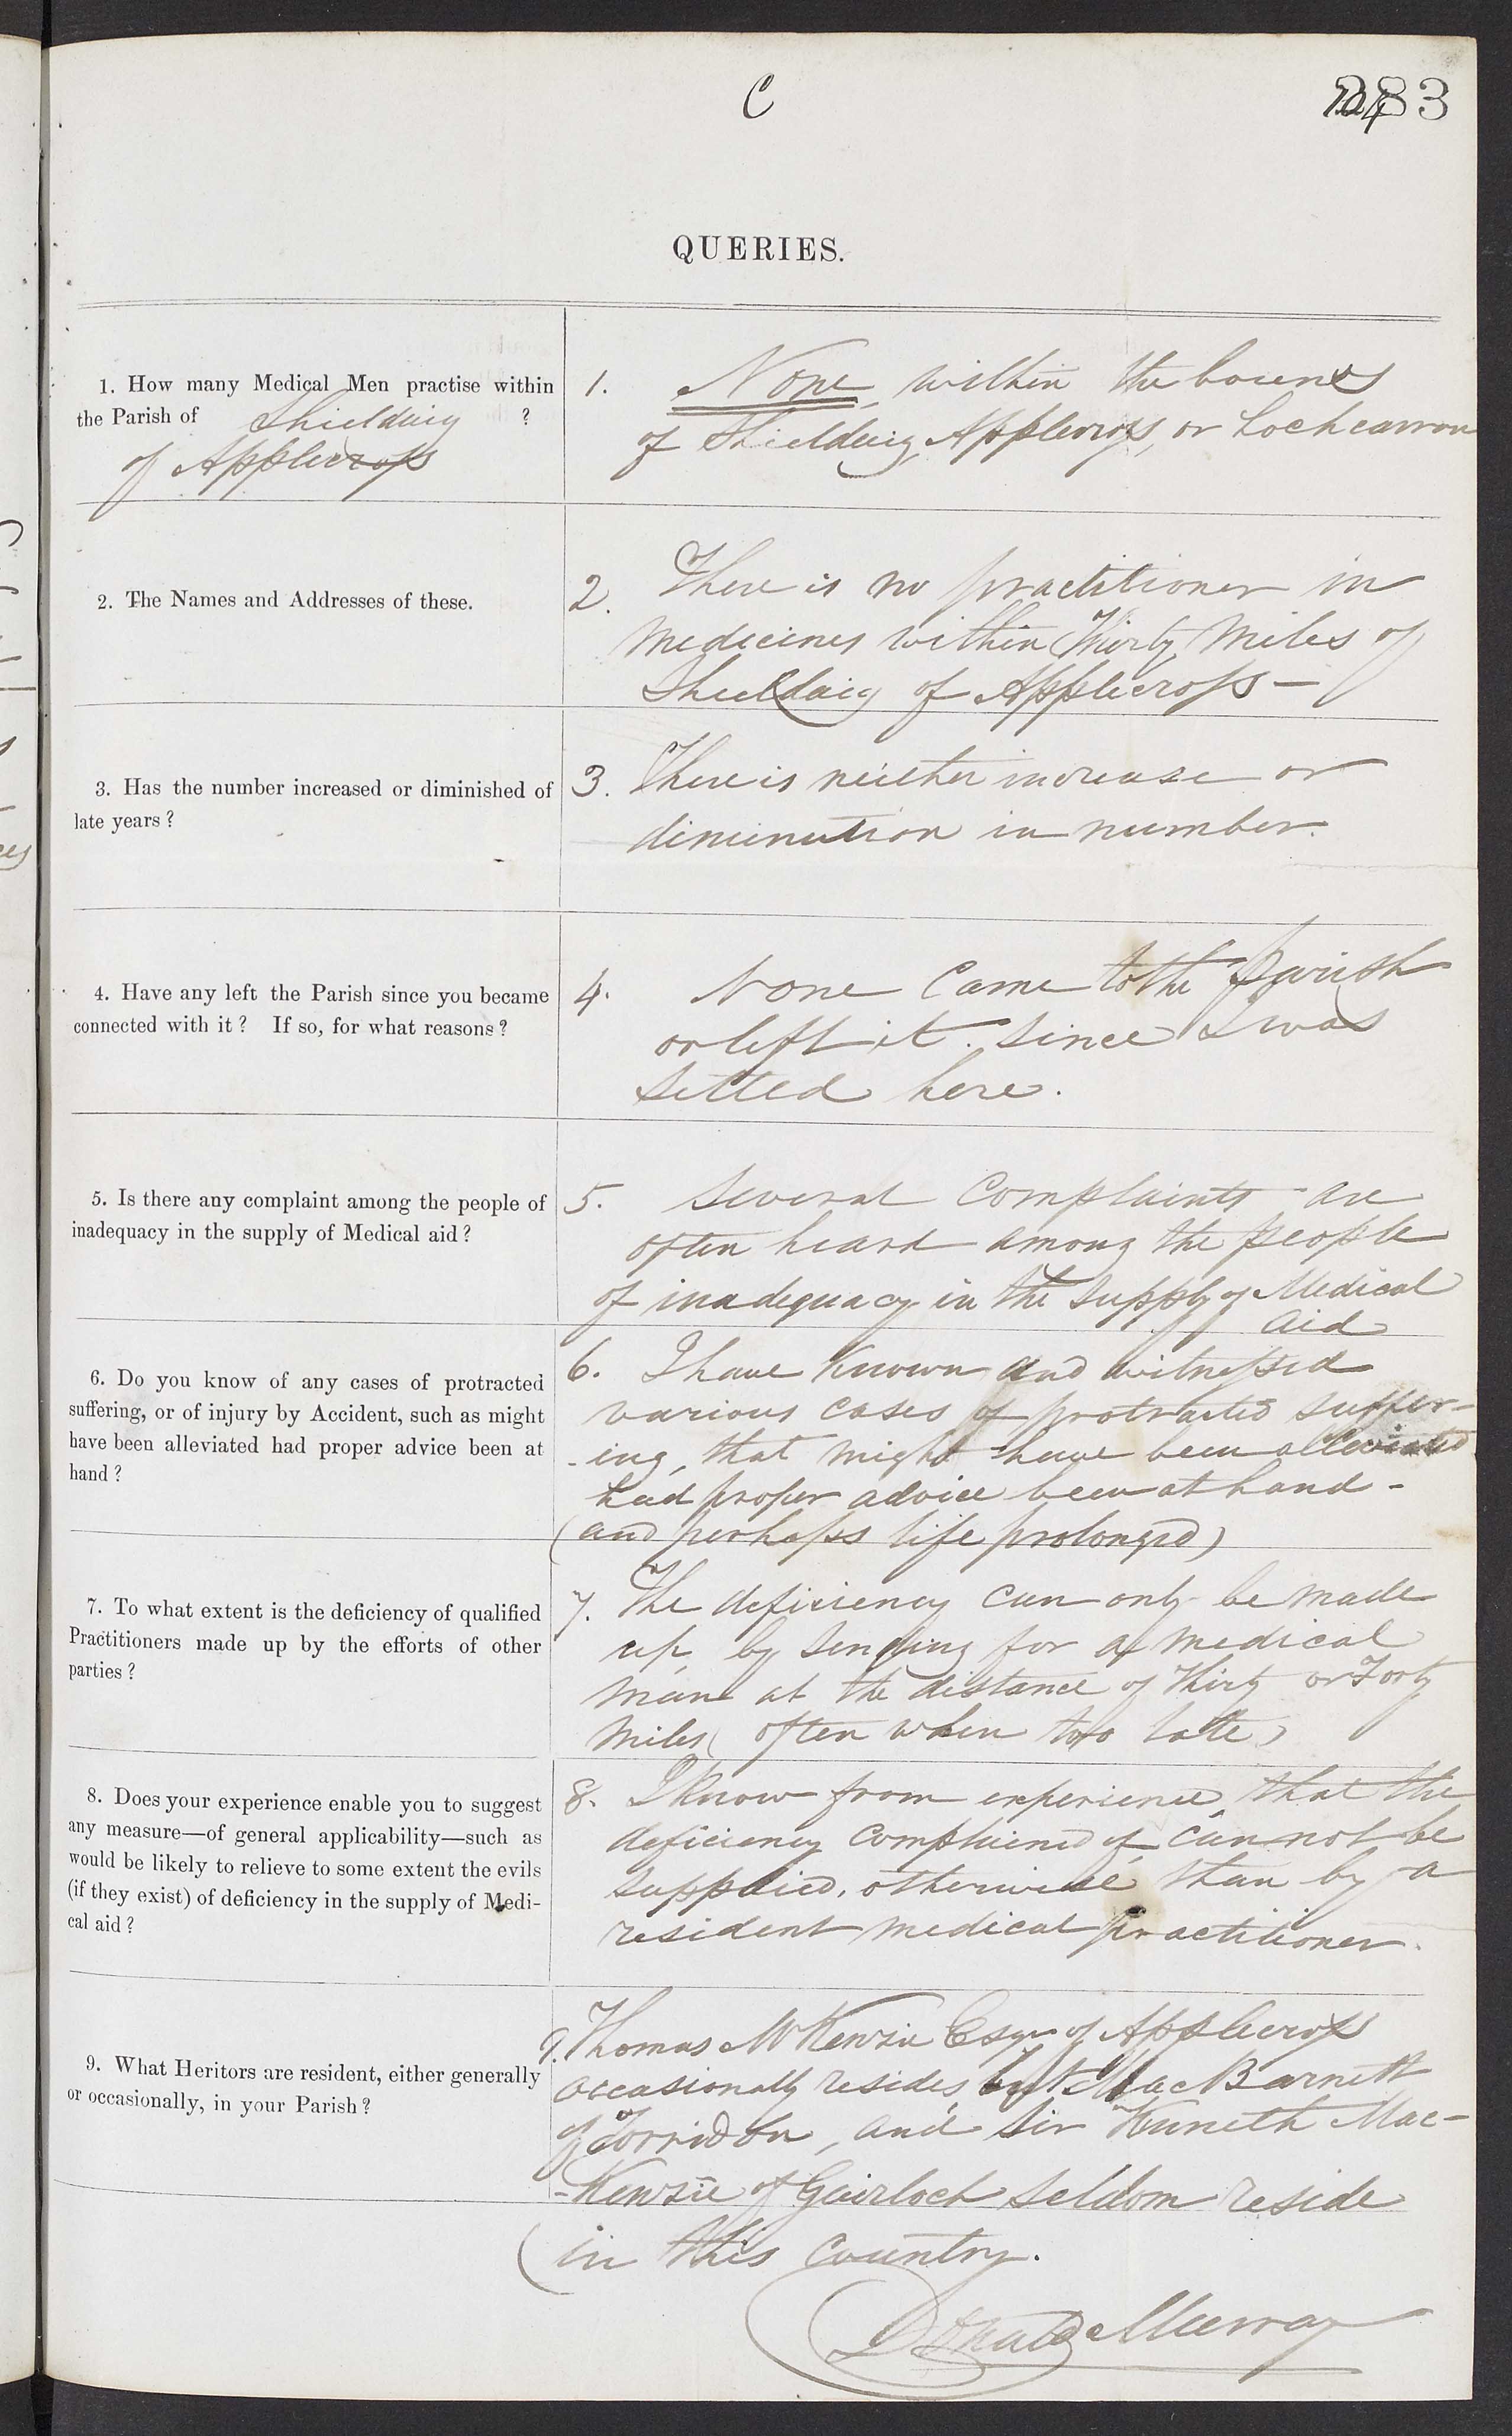 C
283
QUERIES.
1. How many Medical Men practise within
the Parish of Shieldaig ?
of Applecross
1. None, within the bounds
of Shieldaig, Applecross, or Lochcarron
2. The Names and Addresses of these.
2. There is no practitioner in
medicines within Thirty Miles of
Shieldaig of Applecross —
3. Has the number increased or diminished of
late years ?
3. There is neither increase or
diminution in number.
4. Have any left the Parish since you became
connected with it ? If so, for what reasons ?
4. None Came to the Parish
or left it since I was
Settled here.
5. Is there any complaint among the people of
inadequacy in the supply of Medical aid ?
5. Several Complaints are
often heard among the people
of inadequacy in the supply of Medical
aid
6. Do you know of any cases of protracted
suffering, or of injury by Accident, such as might
have been alleviated had proper advice been at
hand ?
6. I have Known and witnessed
various cases of protracted suffer-
-ing, that might have been alleviated
had proper advice been at hand -
(and perhaps life prolonged)
7. To what extent is the deficiency of qualified
Practitioners made up by the efforts of other
parties ?
7. The deficiency can only be made
up, by sending for a medical
man at the distance of Thirty or Forty
Miles (often when too late)
8. Does your experience enable you to suggest
any measure—of general applicability—such as
would be likely to relieve to some extent the evils
(if they exist) of deficiency in the supply of Medi-
cal aid ?
8. I know from experience, that the
deficiency complained of, can not be
supplied, otherwise than by a
resident medical practitioner.
9. What Heritors are resident, either generally
or occasionally, in your Parish ?
9. Thomas McKenzie Esqr of Applecross
occasionally resides, but MacBarnett
of Torridon, and Sir Kenneth Mac-
-Kenzie of Gairloch seldom reside
(in this Country.
Donald Murray